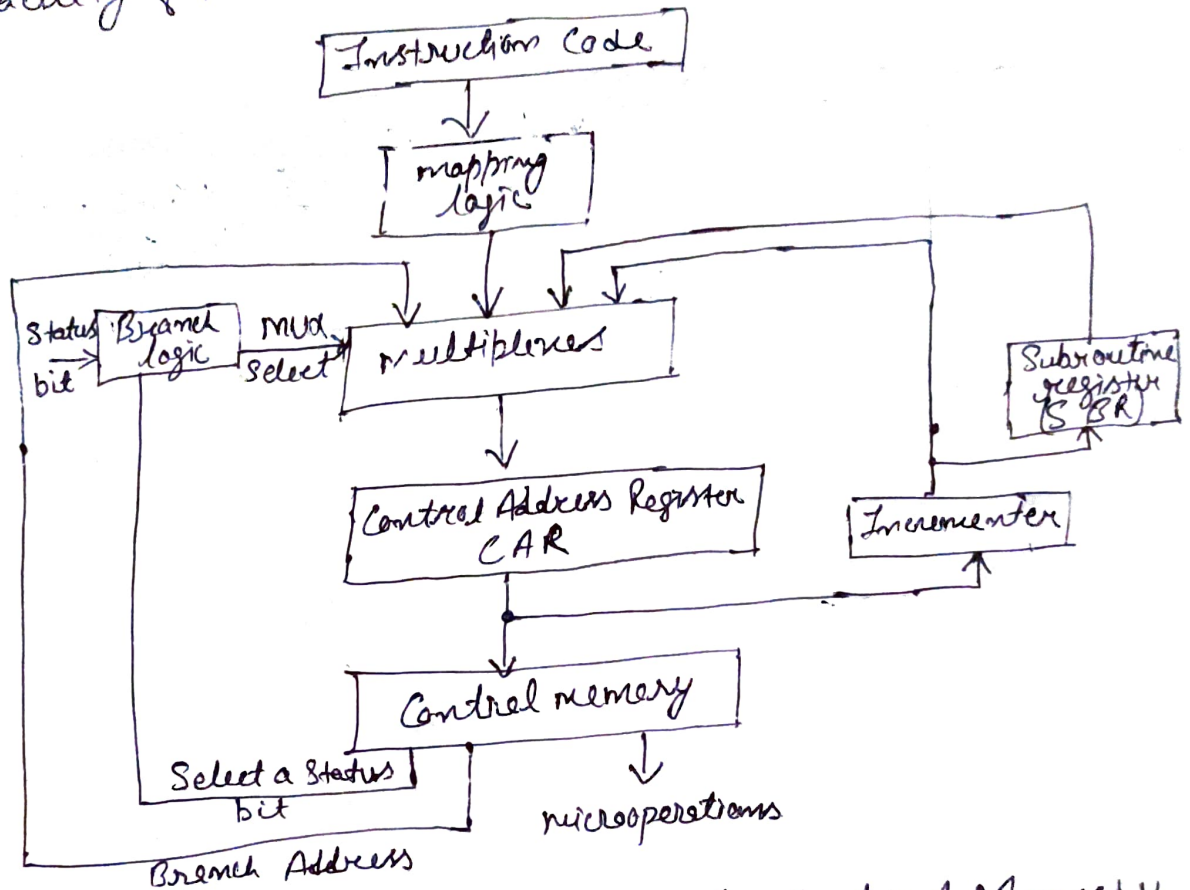 Instruction Code
mapping
logic
Status
bit
Branch
logic
mux
Select
Multiplexers
Subroutine
register
(SBR)
Control Address Register
CAR
Incrementer
Control memory
Select a Status
bit
microoperations
Branch Address